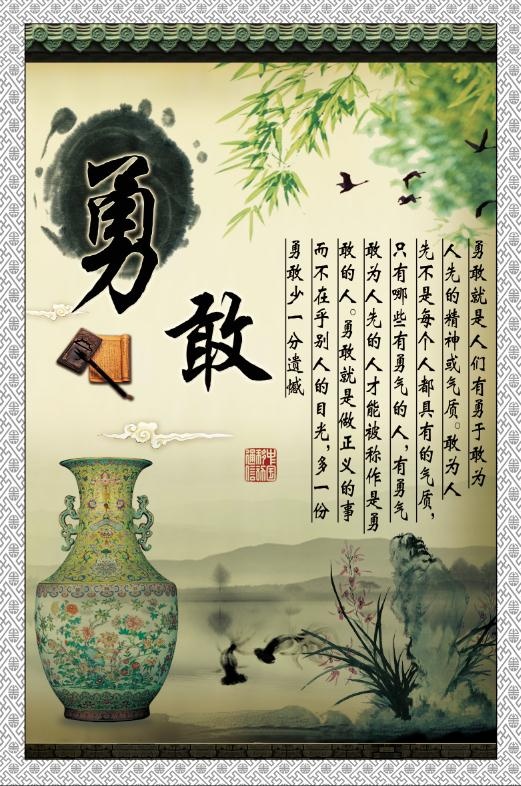 勇敢
勇敢就是人们有勇于敢为
人先的精神或气质。敢为人
先不是每个人都具有的气质，
只有哪些有勇气的人，有勇气
敢为人先的人才能被称作是勇
敢的人。勇敢就是做正义的事
而不在乎别人的目光，多一份
勇敢少一分遗憾